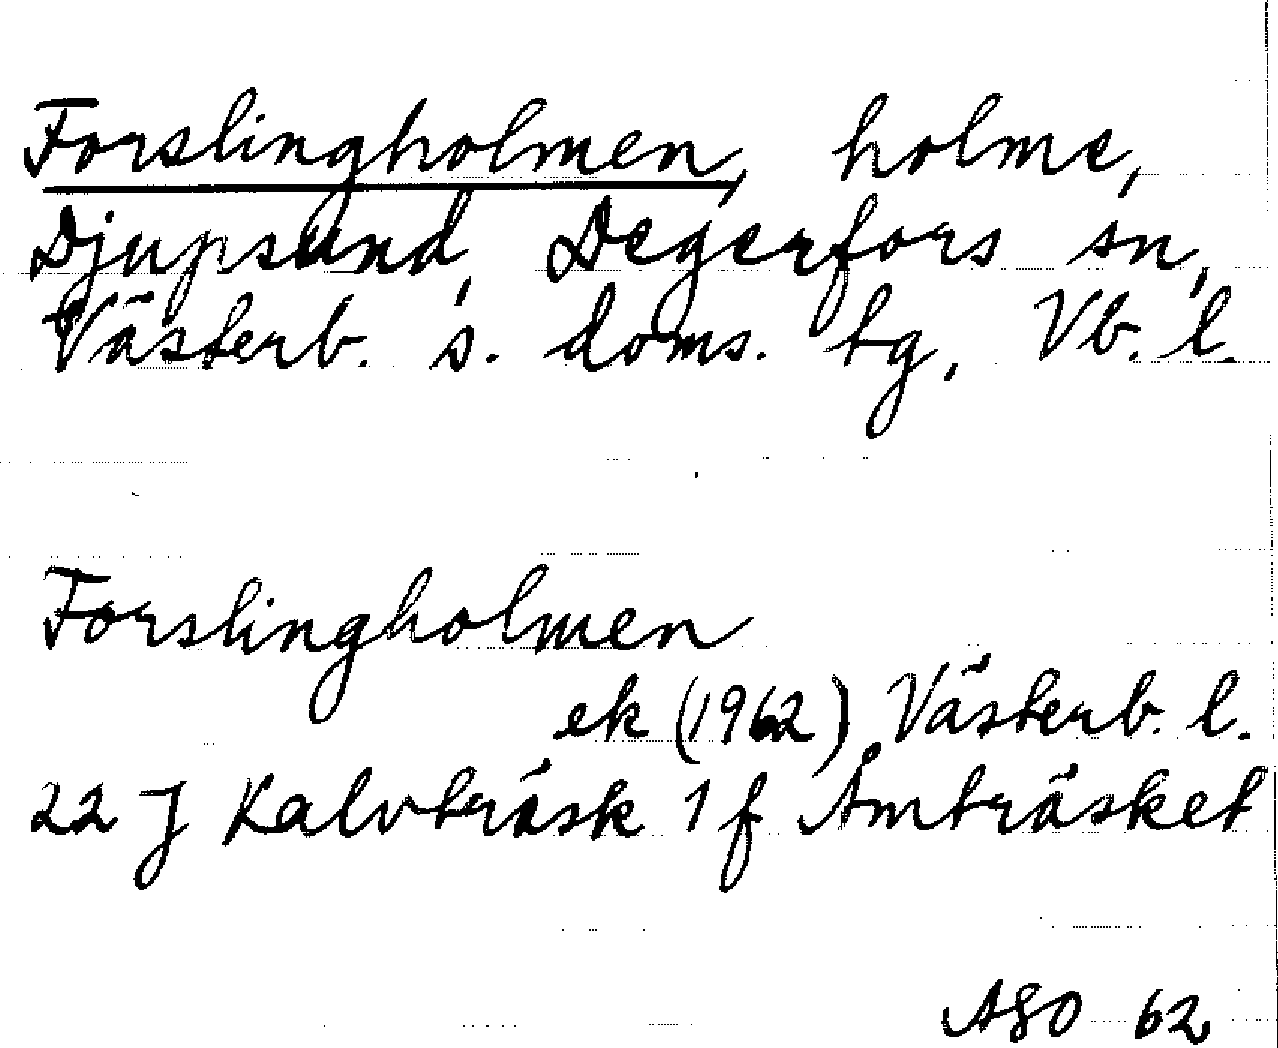 Forslingholmen, holme,
Djupsund, Degerfors sn,
Västerb. s. doms. tg, Vb. l.
Forslingholmen
ek (1962) Västerb. l.
22 J Kalvträsk 1 f Åmträsket
ASO 62